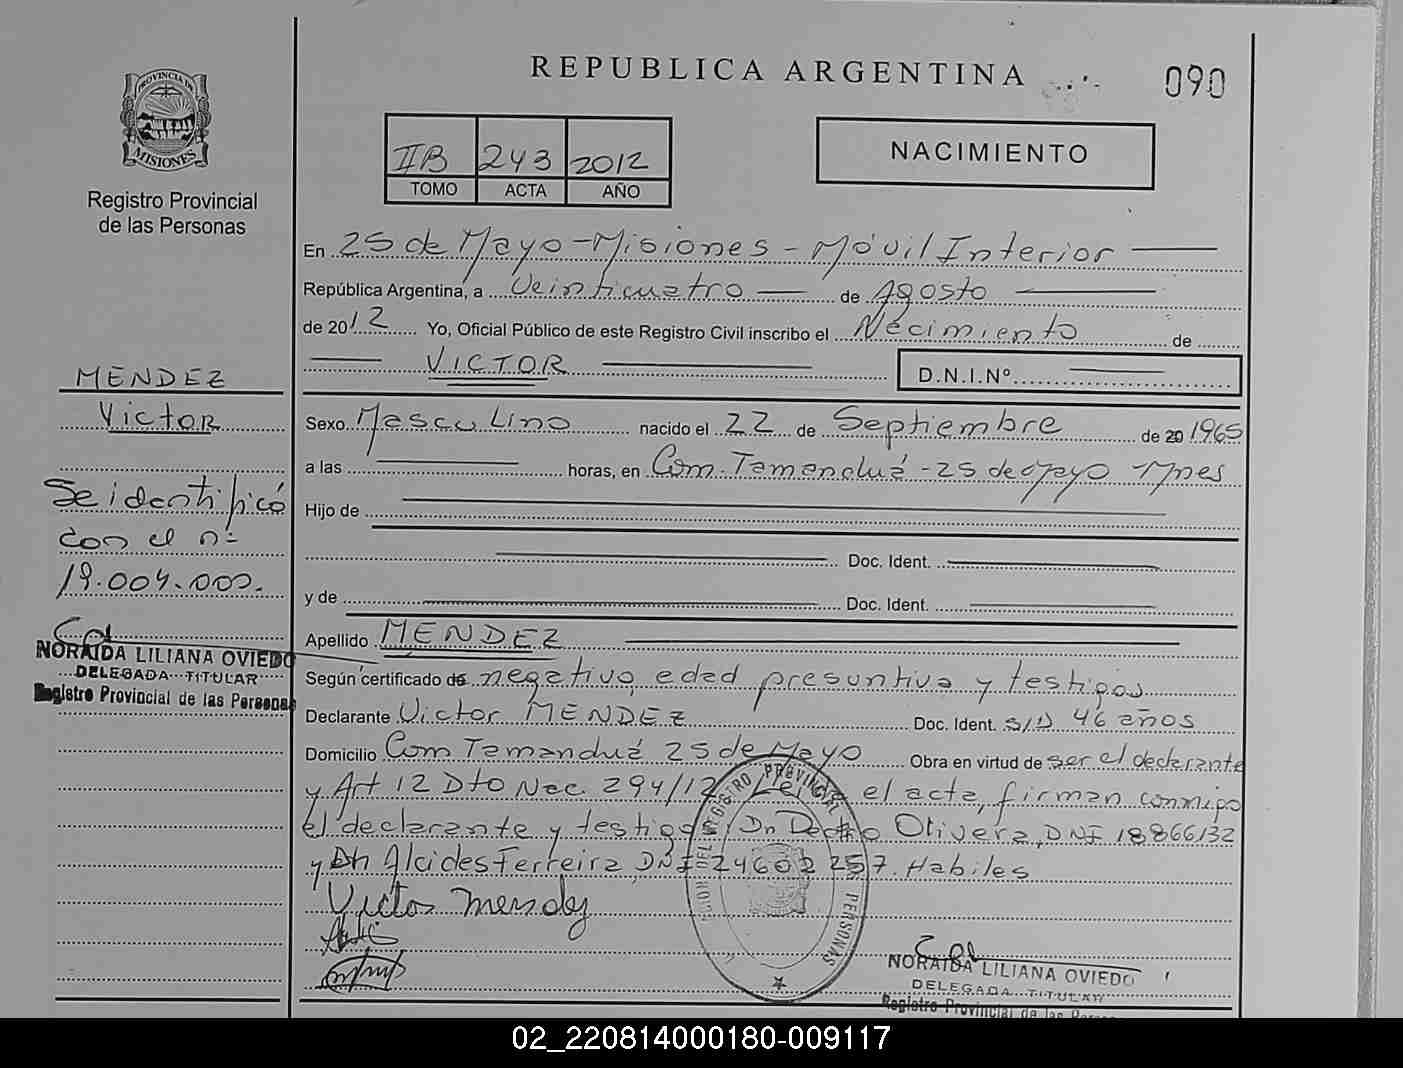 REPUBLICA ARGENTINA
090
PROVINCIA DE
MISIONES
Registro Provincial
de las Personas
IIB 243 2012
TOMO ACTA AÑO
NACIMIENTO
En 25 de Mayo - Misiones - Móvil Interior
República Argentina, a Veinticuatro de Agosto
de 2012 Yo, Oficial Público de este Registro Civil inscribo el Nacimiento de
VICTOR D.N.I.Nº
MENDEZ
Victor
Se identificó
con el nº
19.004.000.
NORAIDA LILIANA OVIEDO
DELEGADA TITULAR
Registro Provincial de las Personas
Sexo Masculino nacido el 22 de Septiembre de 20 1965
a las horas, en Com. Tamanduá - 25 de Mayo Mnes
Hijo de
Doc. Ident.
y de Doc. Ident.
Apellido MENDEZ
Según certificado de negativo, edad presuntiva y testigos
Declarante Victor MENDEZ Doc. Ident. S/D 46 años
Domicilio Com Tamanduá 25 de Mayo Obra en virtud de ser el declarante
y Art 12 Dto Nac. 294/12 el acta, firman conmigo
el declarante y testigos, Dn Olivera, DNI 18866132
y Dn Alcides Ferreira DNI 24602257. Habiles
Victor Mendez
REGISTRO PROVINCIAL
PERSONAS
NORAIDA LILIANA OVIEDO
DELEGADA TITULAR
Registro Provincial de las
02_220814000180-009117